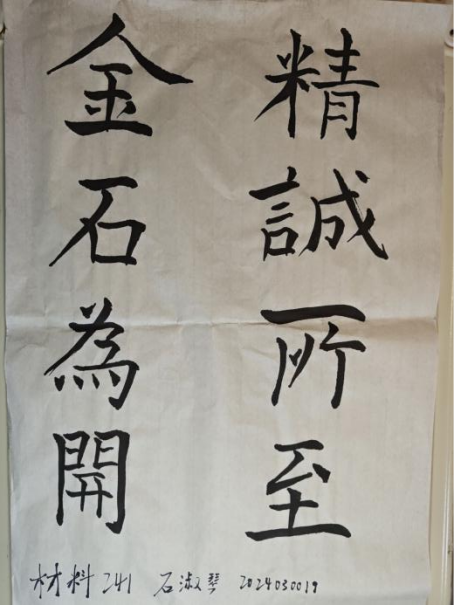 精誠所至
金石為開
材料241 石淑琴 2024030019